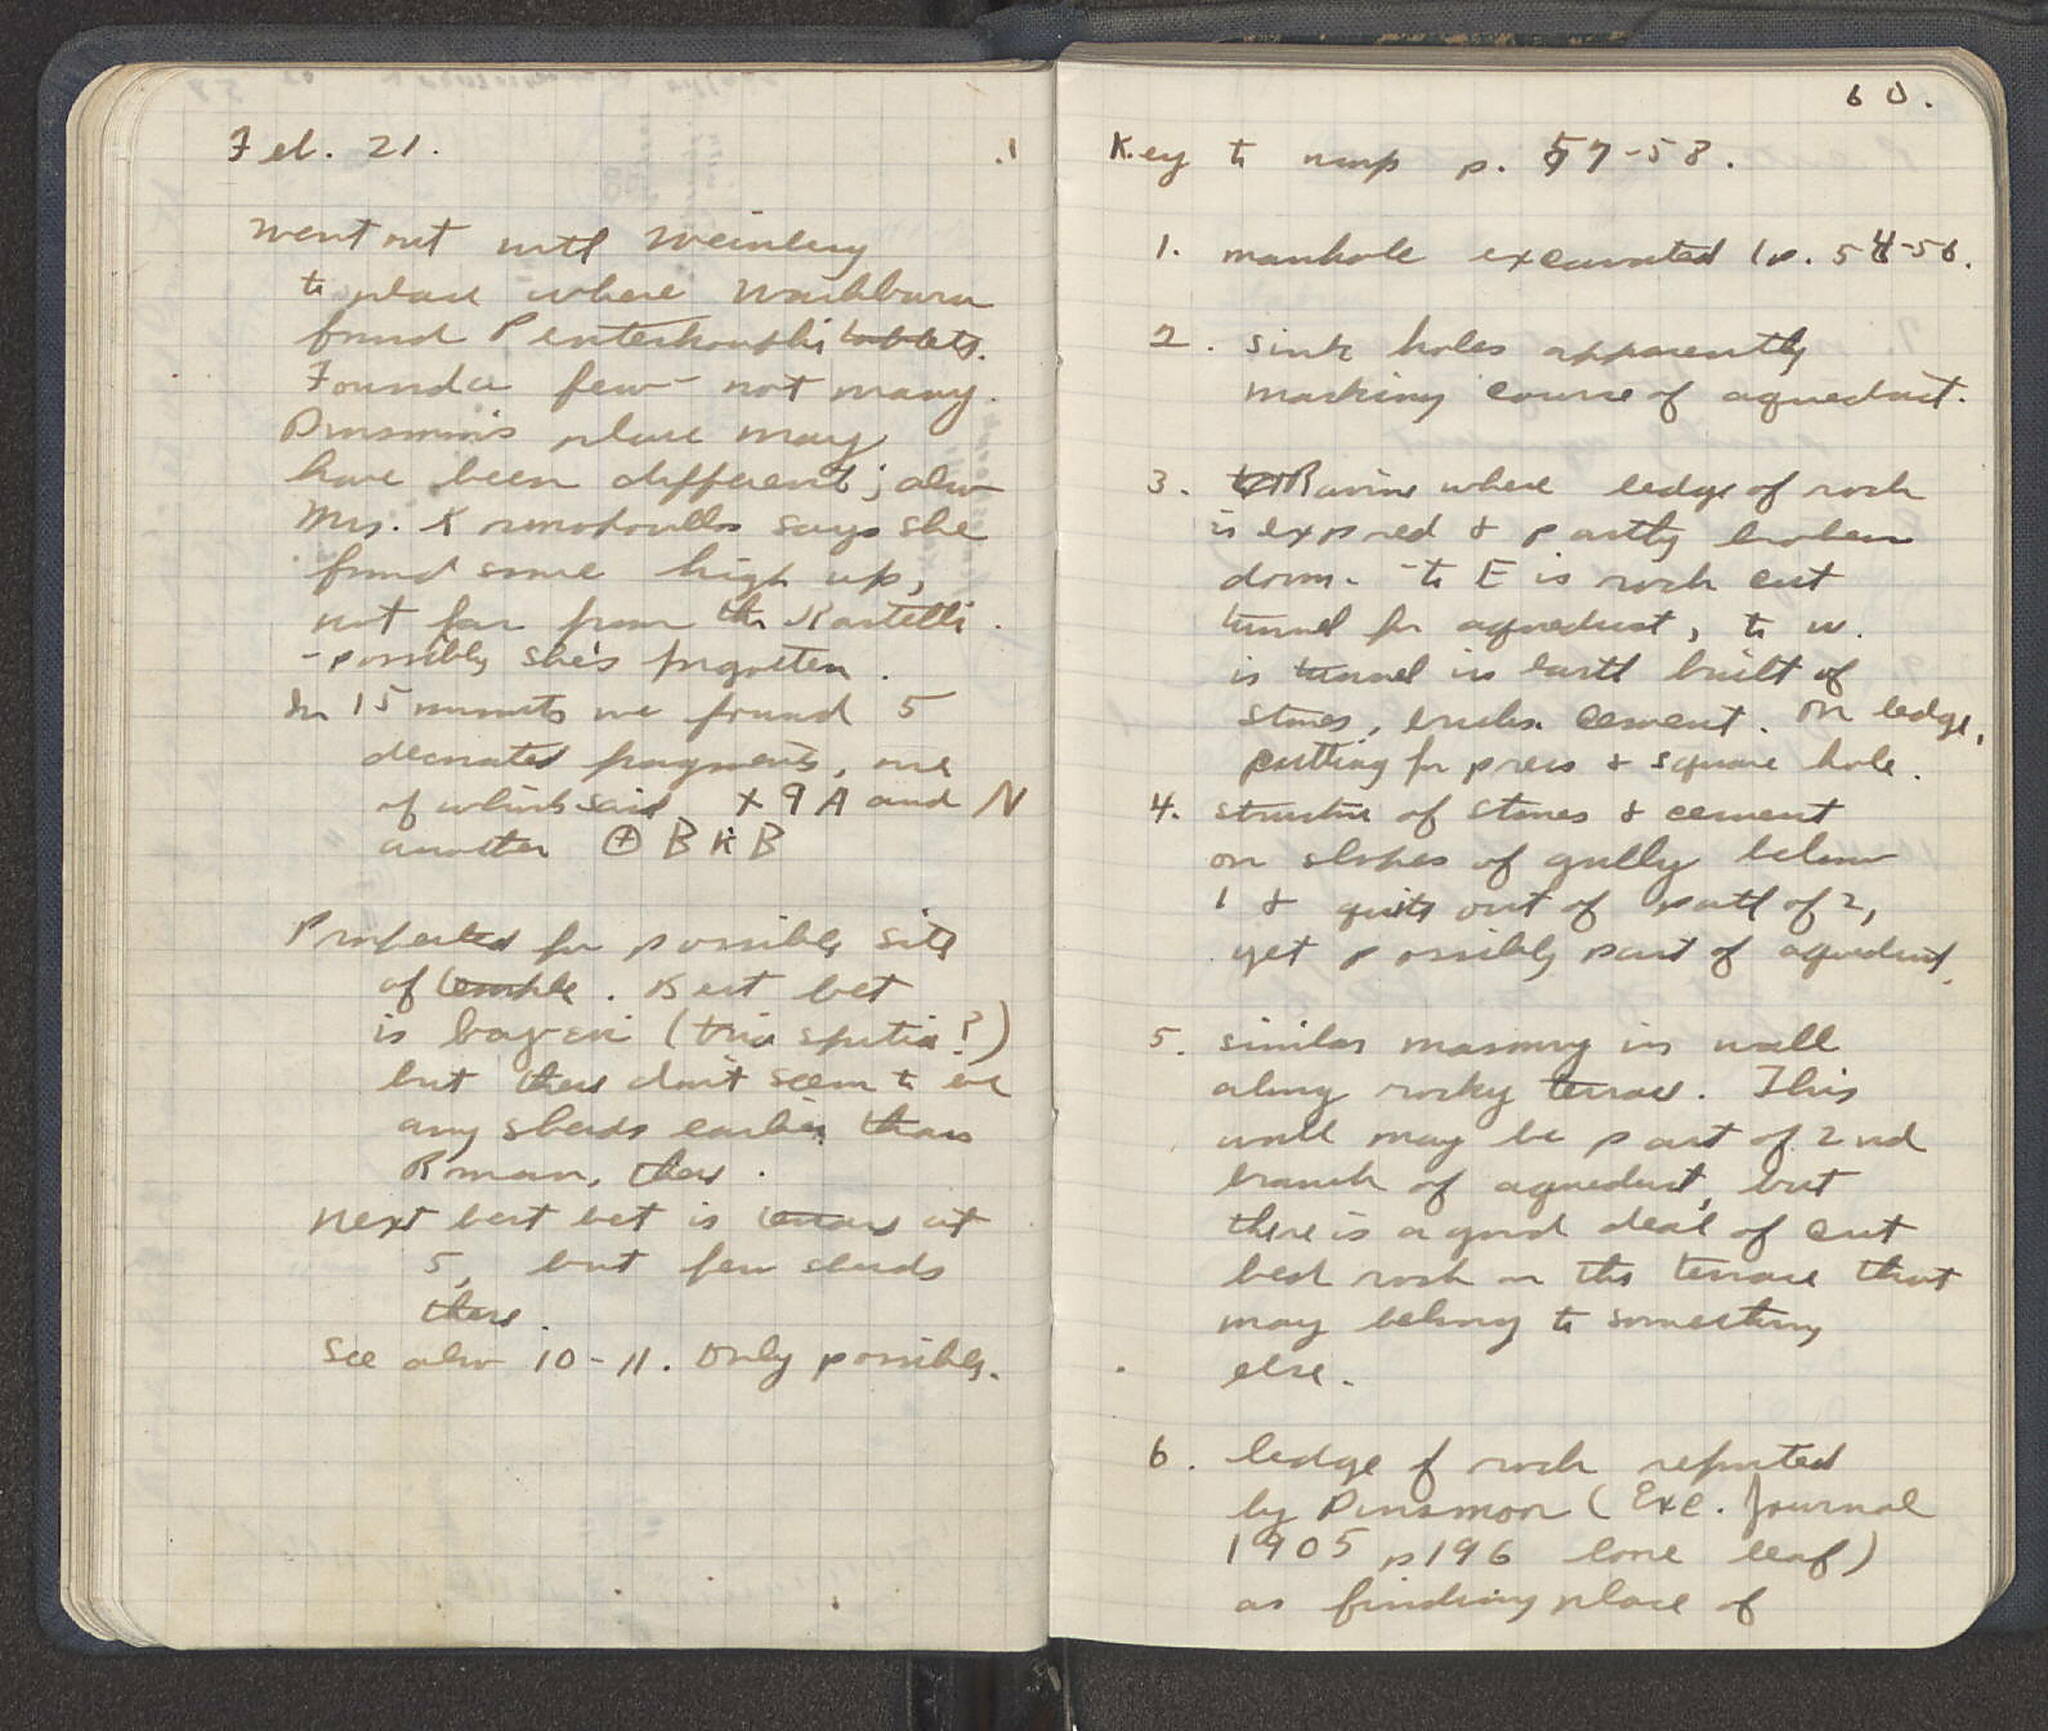 Feb. 21.
Went out with Weinberg
to place where Washburn
found Penteskouphi tablets.
Found a few - not many.
Dinsmoor's place may
have been different; also
Mrs. Kosmopoullos says she
found some high up,
not far from the Kastelli.
- possibly she's forgotten.
In 15 minutes we found 5
decorated fragments, one
of which said + 9 A and N
another ⊕ B K B
Prospected for possible site
of temple. Best bet
is (this spitia?)
but there don't seem to be
any sherds earlier than
Roman, there.
Next best bet is terrace at
5, but few sherds
there.
See also 10-11. Only possibly.
60.
Key to map p. 57-58.
1. manhole excavated (p. 54-56.
2. sink holes apparently
marking course of aqueduct.
3. Ravine where ledge of rock
is exposed & partly broken
down. - to E is rock cut
tunnel for aqueduct, to W.
is tunnel in earth built of
stones, broken cement. On ledge,
cutting for press & square hole.
4. structure of stones & cement
on slopes of gully below
1 & quite out of path of 2,
yet possibly part of aqueduct.
5. similar masonry in wall
along rocky terrace. This
wall may be part of 2nd
branch of aqueduct, but
there is a good deal of cut
bed rock on this terrace that
may belong to something
else.
6. ledge of rock reported
by Dinsmoor (Exc. Journal
1905 p196 loose leaf)
as finding place of